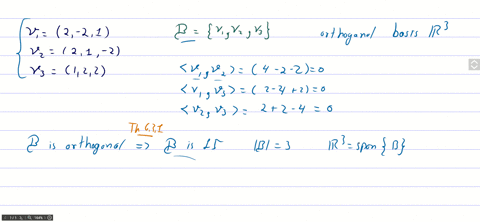 v₁ = (2, -2, 1)
v₂ = (2, 1, -2)
v₃ = (1, 2, 2)
B = {v₁, v₂, v₃} orthogonal basis ℝ³
<v₁, v₂> = (4 - 2 - 2) = 0
<v₁, v₃> = (2 - 4 + 2) = 0
<v₂, v₃> = 2 + 2 - 4 = 0
Th 6.3.1
B is orthogonal => B is LI |B| = 3 ℝ³ = span {B}